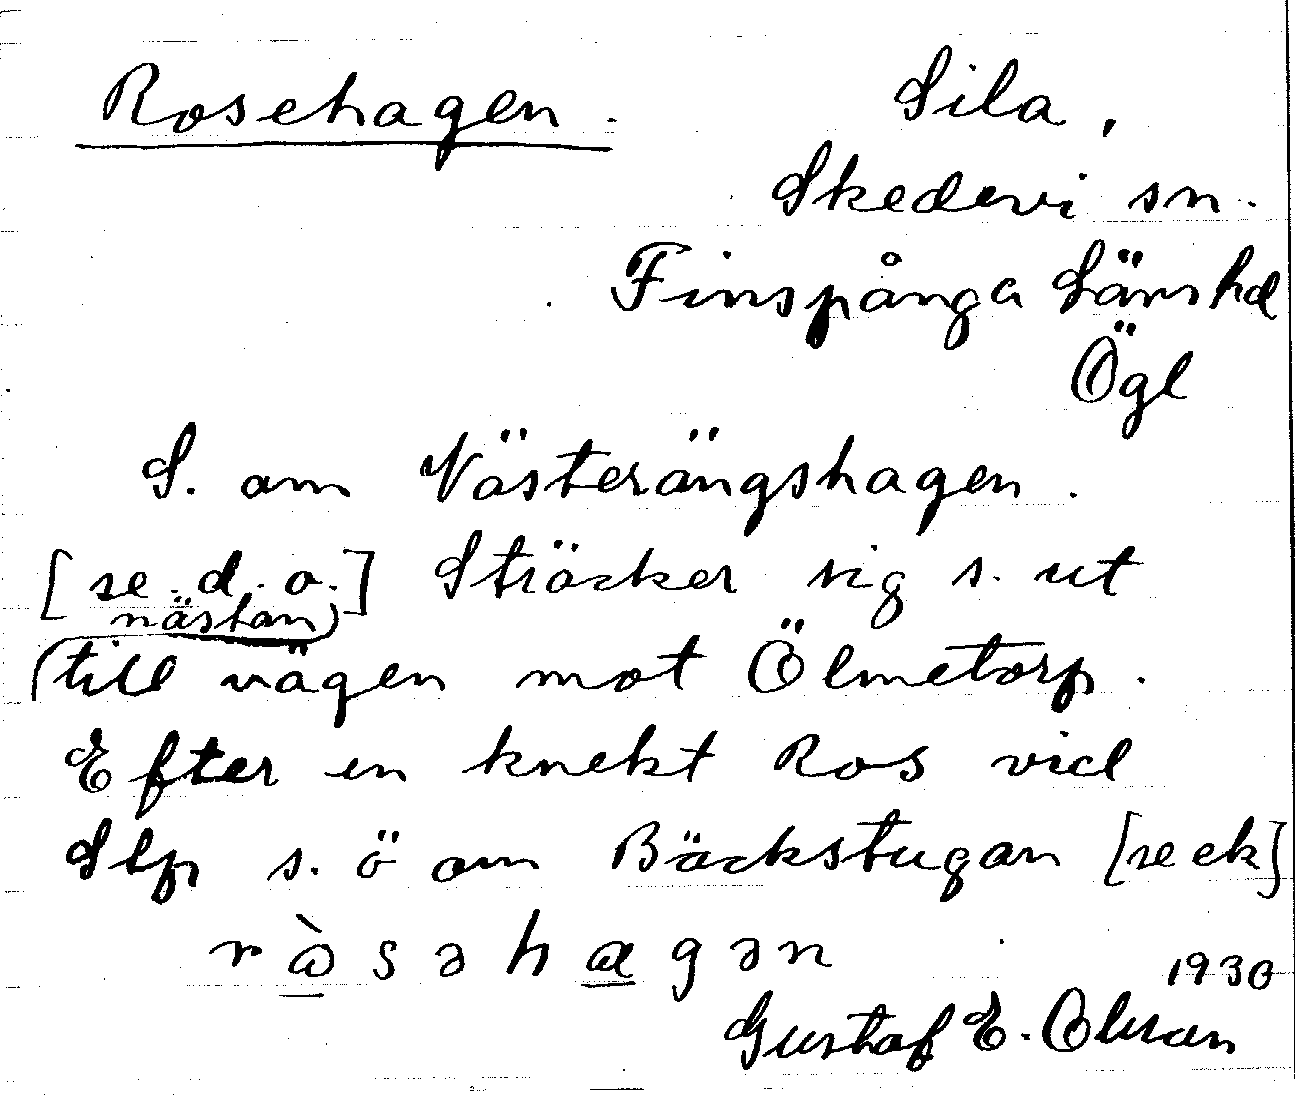 Rosehagen.
Sila,
Skedevi sn.
Finspånga Länshd
Ögl
S. om Västerängshagen.
[se d. o.] Sträcker sig s. ut
(nästan)
till vägen mot Ölmetorp.
Efter en knekt Ros vid
Slp s. ö om Bäckstugan [se ek]
1930
Gustaf E. Olson